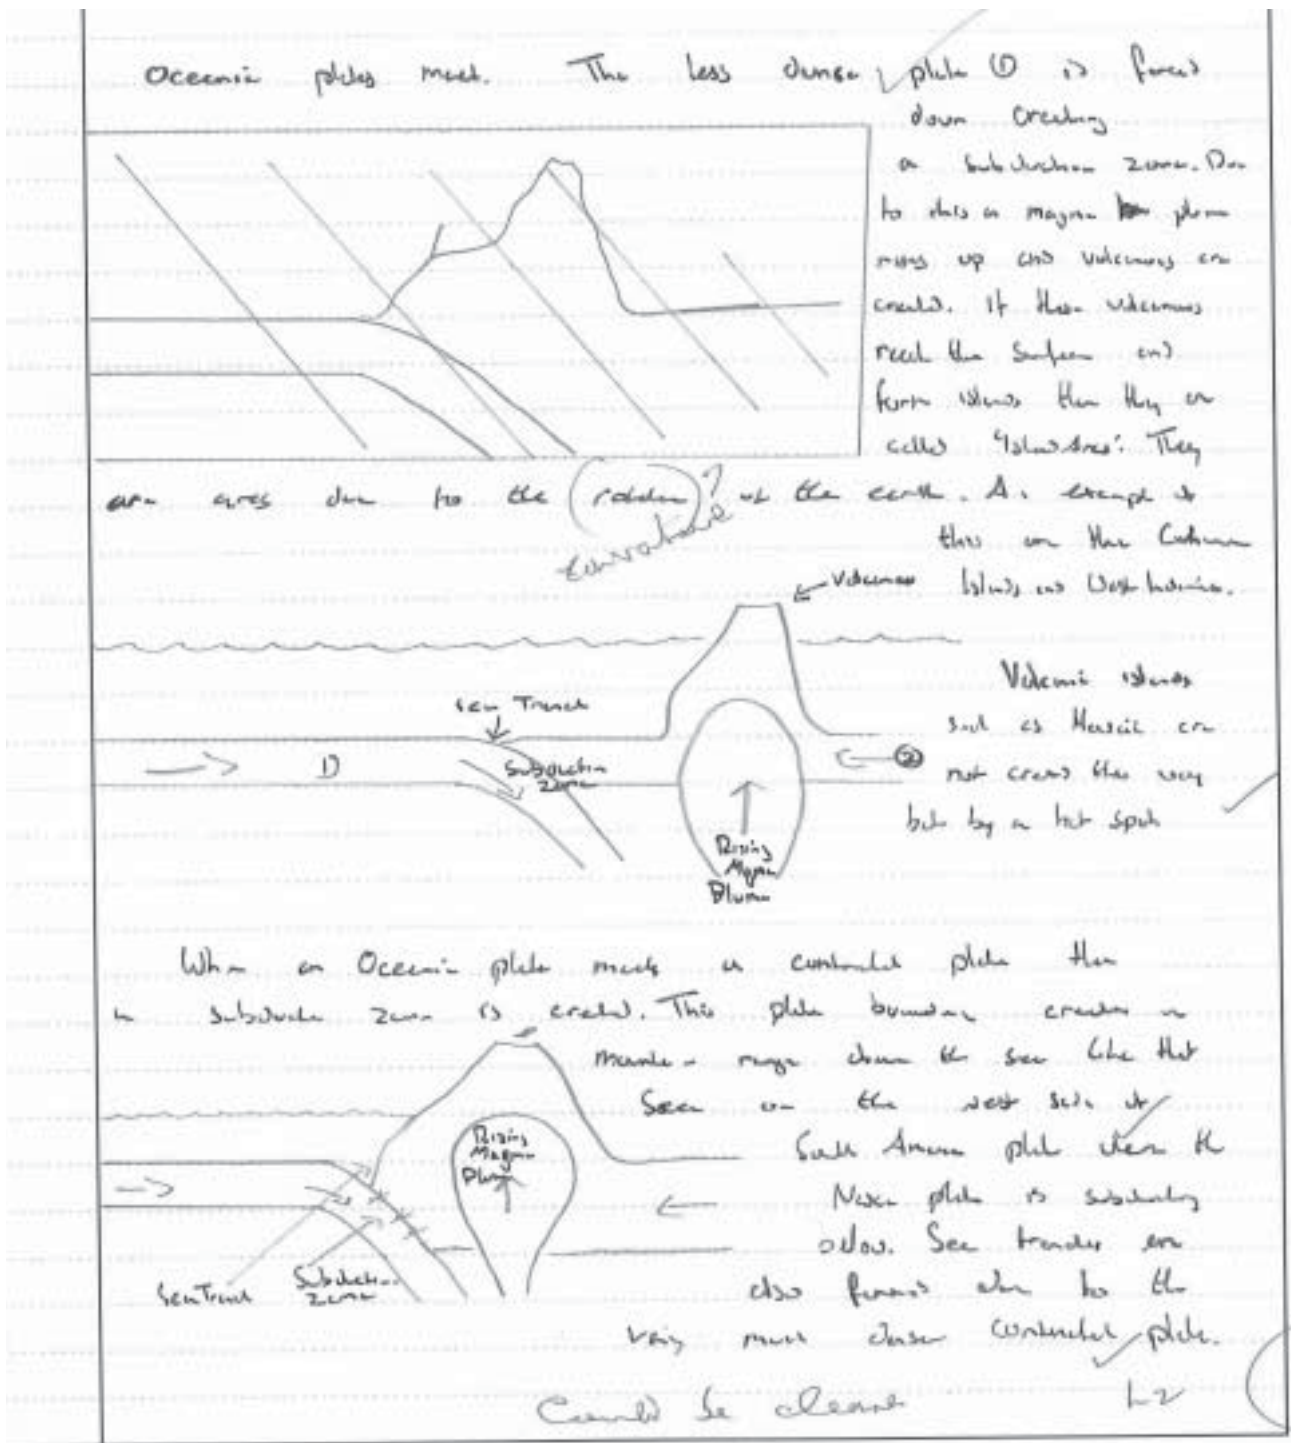 Oceanic plates meet. The less dense plate ① is forced
down creating
a subduction zone. Due
to this a magma plume
rises up and volcanoes are
created. If these volcanoes
reach the surface and
form islands then they are
called "Island Arcs". They
are arcs due to the rotation ? of the earth. An example of
curvature
this are the
Islands and West
Volcanoes
Volcanic islands
such as Hawaii are
not created this way
but by a hot spot
Sea Trench
Subduction
Zone
1)
②
Rising
Magma
Plume
When an Oceanic plate meets a continental plate then
a subduction zone is created. This plate boundary creates a
mountain range down the side like that
seen on the west side of
South America plate where the
Nazca plate is subducting
below. Sea trenches are
also formed due to the
very much denser continental plate.
Rising
Magma
Plume
Sea Trench
Subduction
Zone
Could be clearer
L2